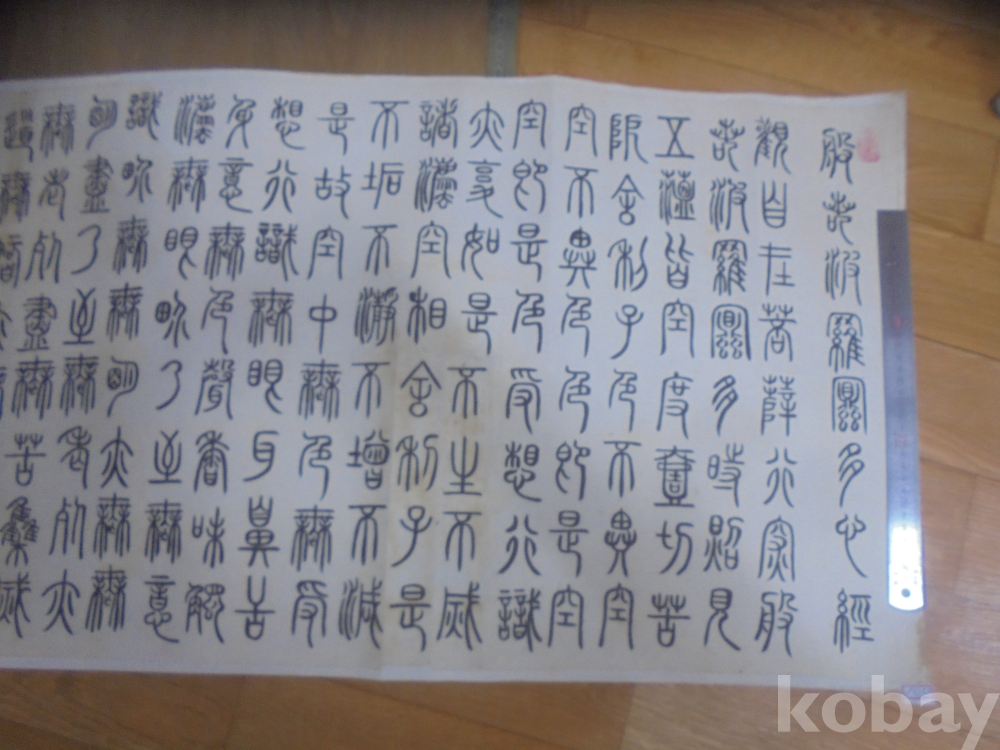 般若波羅蜜多心經
觀自在菩薩行深般
若波羅蜜多時照見
五蘊皆空度壹切苦
厄舍利子色不異空
空不異色色即是空
空即是色受想行識
亦复如是不生不滅
諸法空相舍利子是
不垢不淨不增不減
是故空中無色無受
想行識無眼耳鼻舌
身意無色聲香味觸
法無眼界乃至無意
識界無無明亦無無
明盡乃至無老死亦
無老死盡無苦集滅
道無智亦
kobay